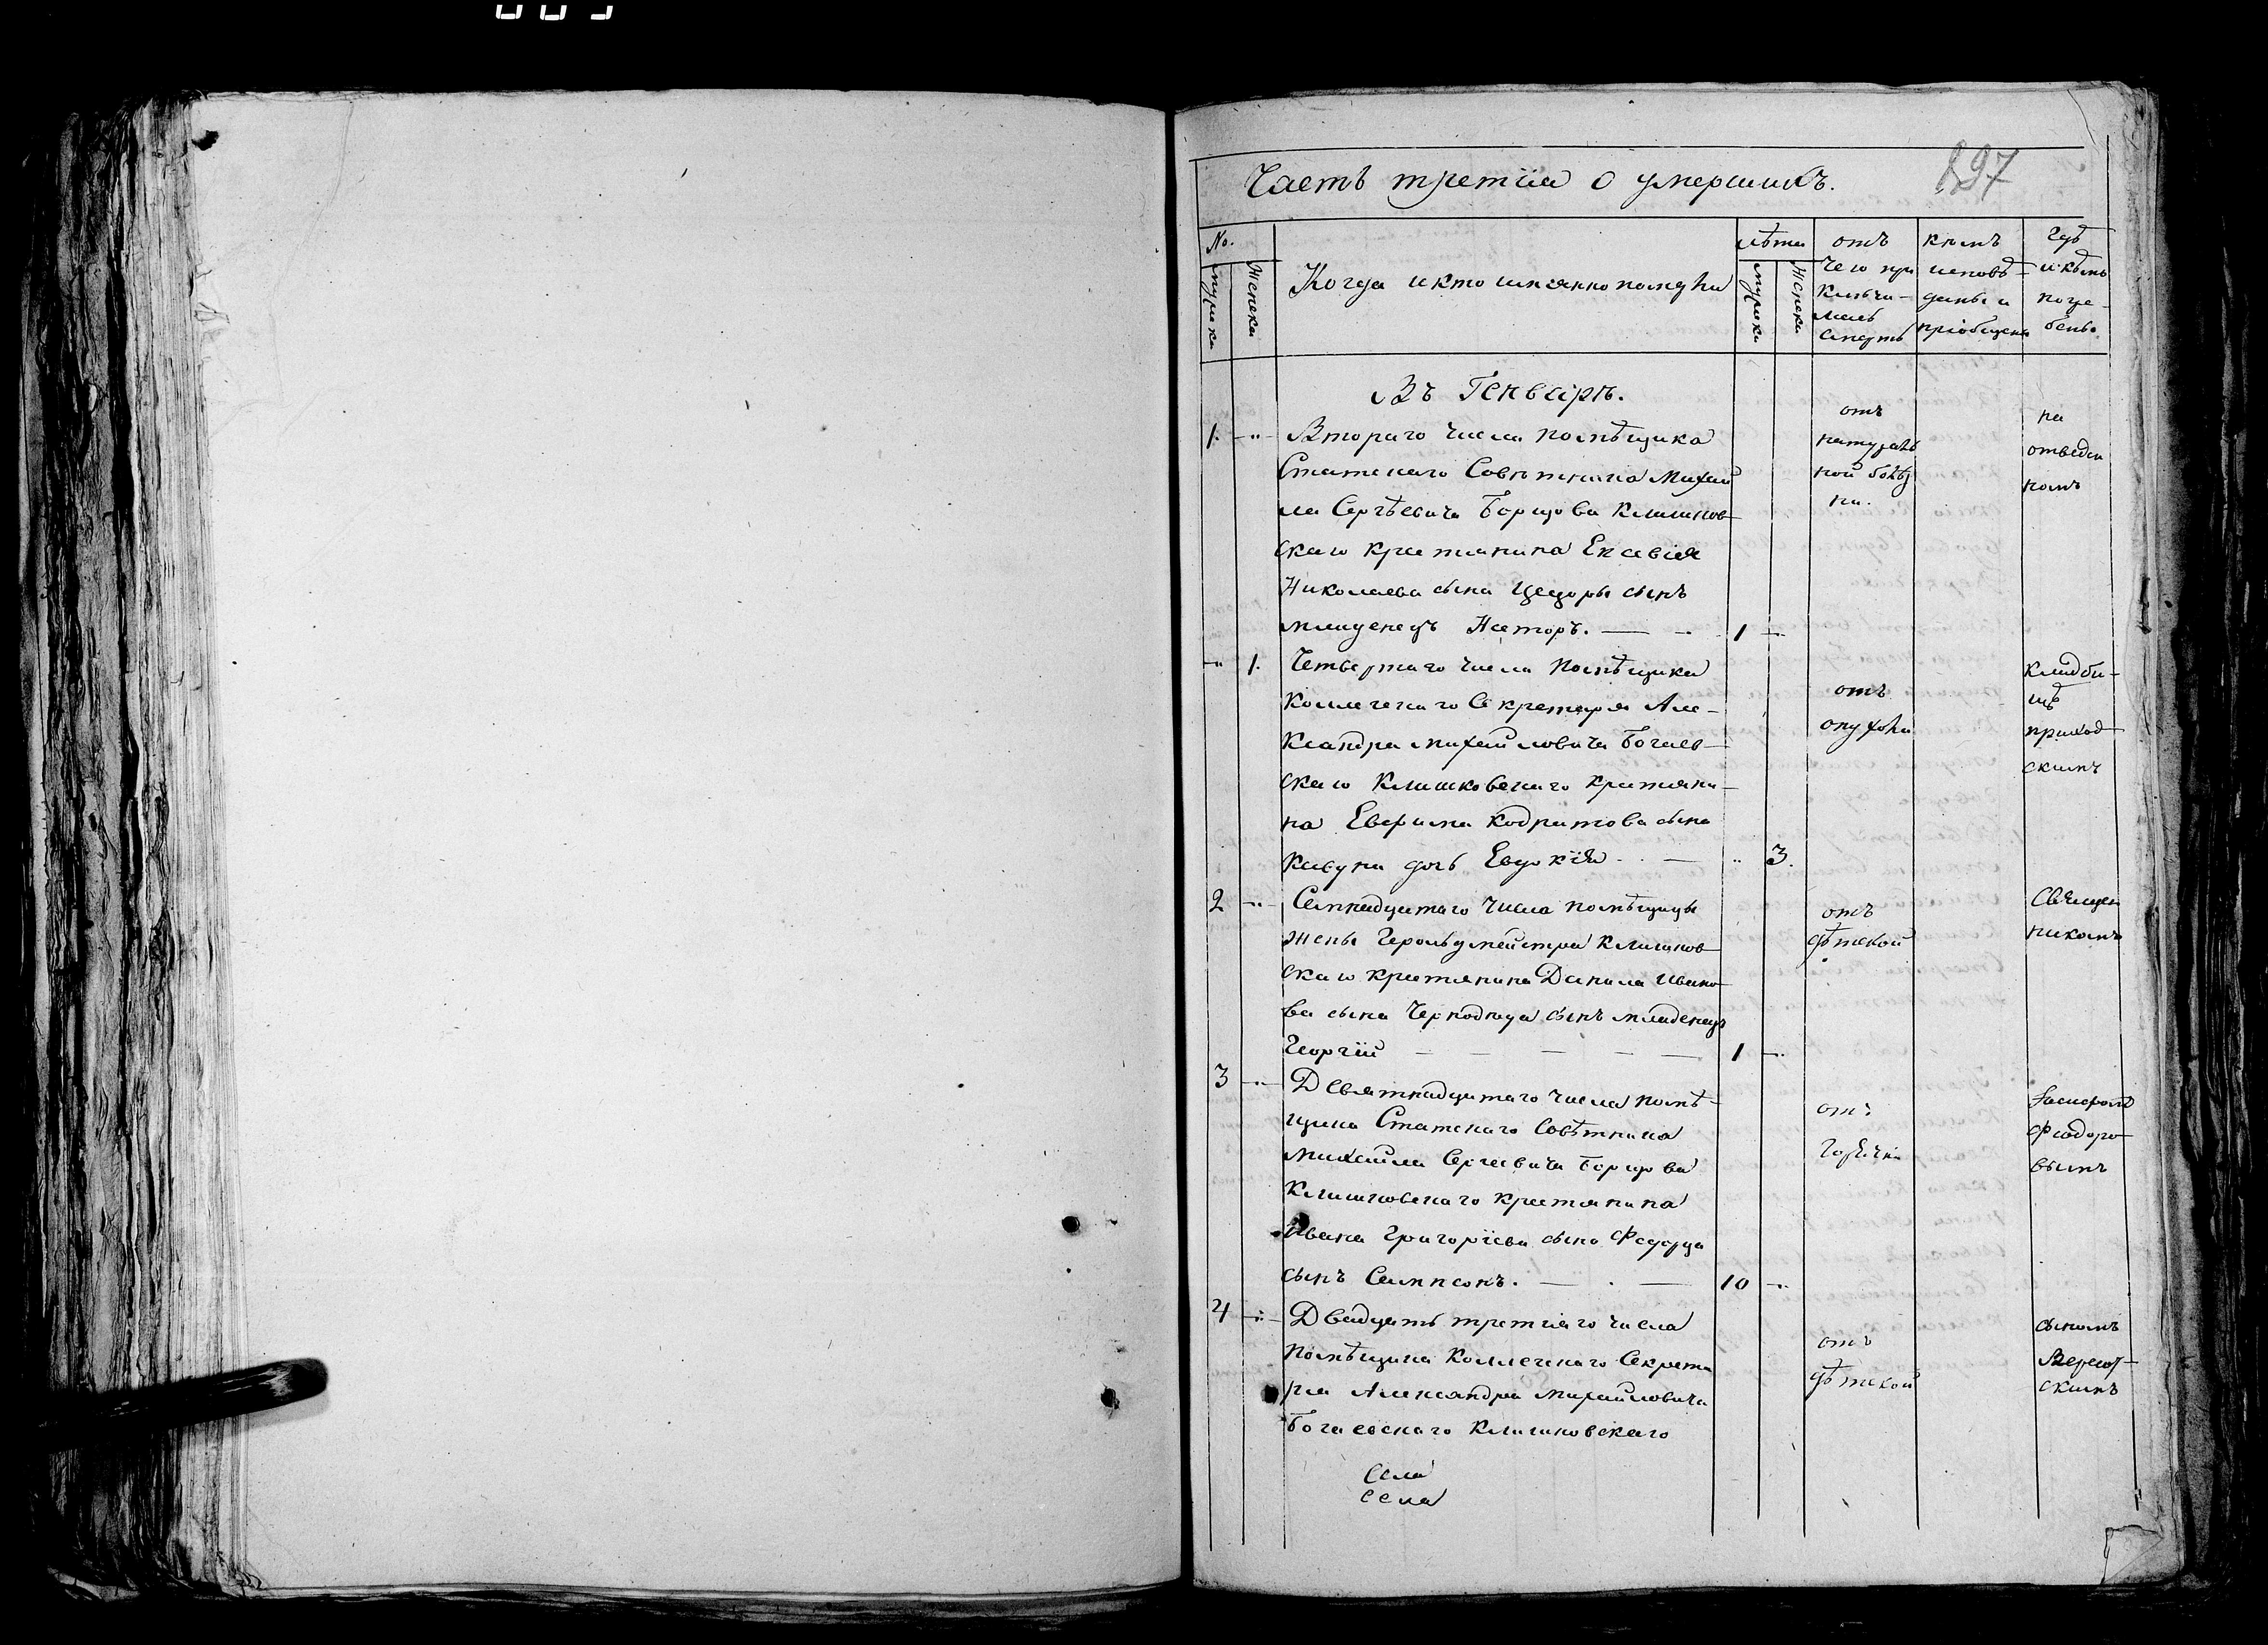 897
Часть третія о умершихъ.
No.
мужска
женска
Когда и кто имянно померли
лѣта
мужска
женска
отъ
чего при
ключи-
лась
смерть
кѣмъ
исповѣ-
даны и
пріобщены
гдѣ
и кѣмъ
погре-
бены
Въ Генварѣ.
1. Втораго числа помѣщика
Статскаго Совѣтника Михай
ла Сергѣевича Борщова Клишков-
скаго крестянина Евсевія
Николаева сына Цецоры сынъ
младенецъ Несторъ. 1
отъ
натураль
ной болѣз
ни.
на
отведен
номъ
1. Четвертаго числа помѣщика
Коллегскаго Секретаря Але-
ксандра Михайловича Богаев-
скаго Клишковскаго крестяни-
на Евфима Кодратова сына
Кавуна дочь Евдокія 3.
отъ
опухоли
кладби-
щѣ
приход-
скимъ
2 Семнадцатаго числа помѣщицы
жены Герольдмейстра Клишков-
скаго крестянина Данила Ивано-
ва сына сынъ младенецъ
Георгій 1
отъ
дѣтской
Священ
никомъ
3 Девятнадцатаго числа помѣ-
щика Статскаго Совѣтника
Михайла Сергеевича Борщова
Клишковскаго крестянина
Ивана Григоріева сына
сынъ Сампсонъ. 10
отъ
горячки
Феодоро-
вымъ
4 Двадцать третіяго числа
помѣщика Коллегскаго Секрета
ря Александра Михайловича
Богаевскаго Клишковскаго
отъ
дѣтской
сыномъ
скимъ
села
села